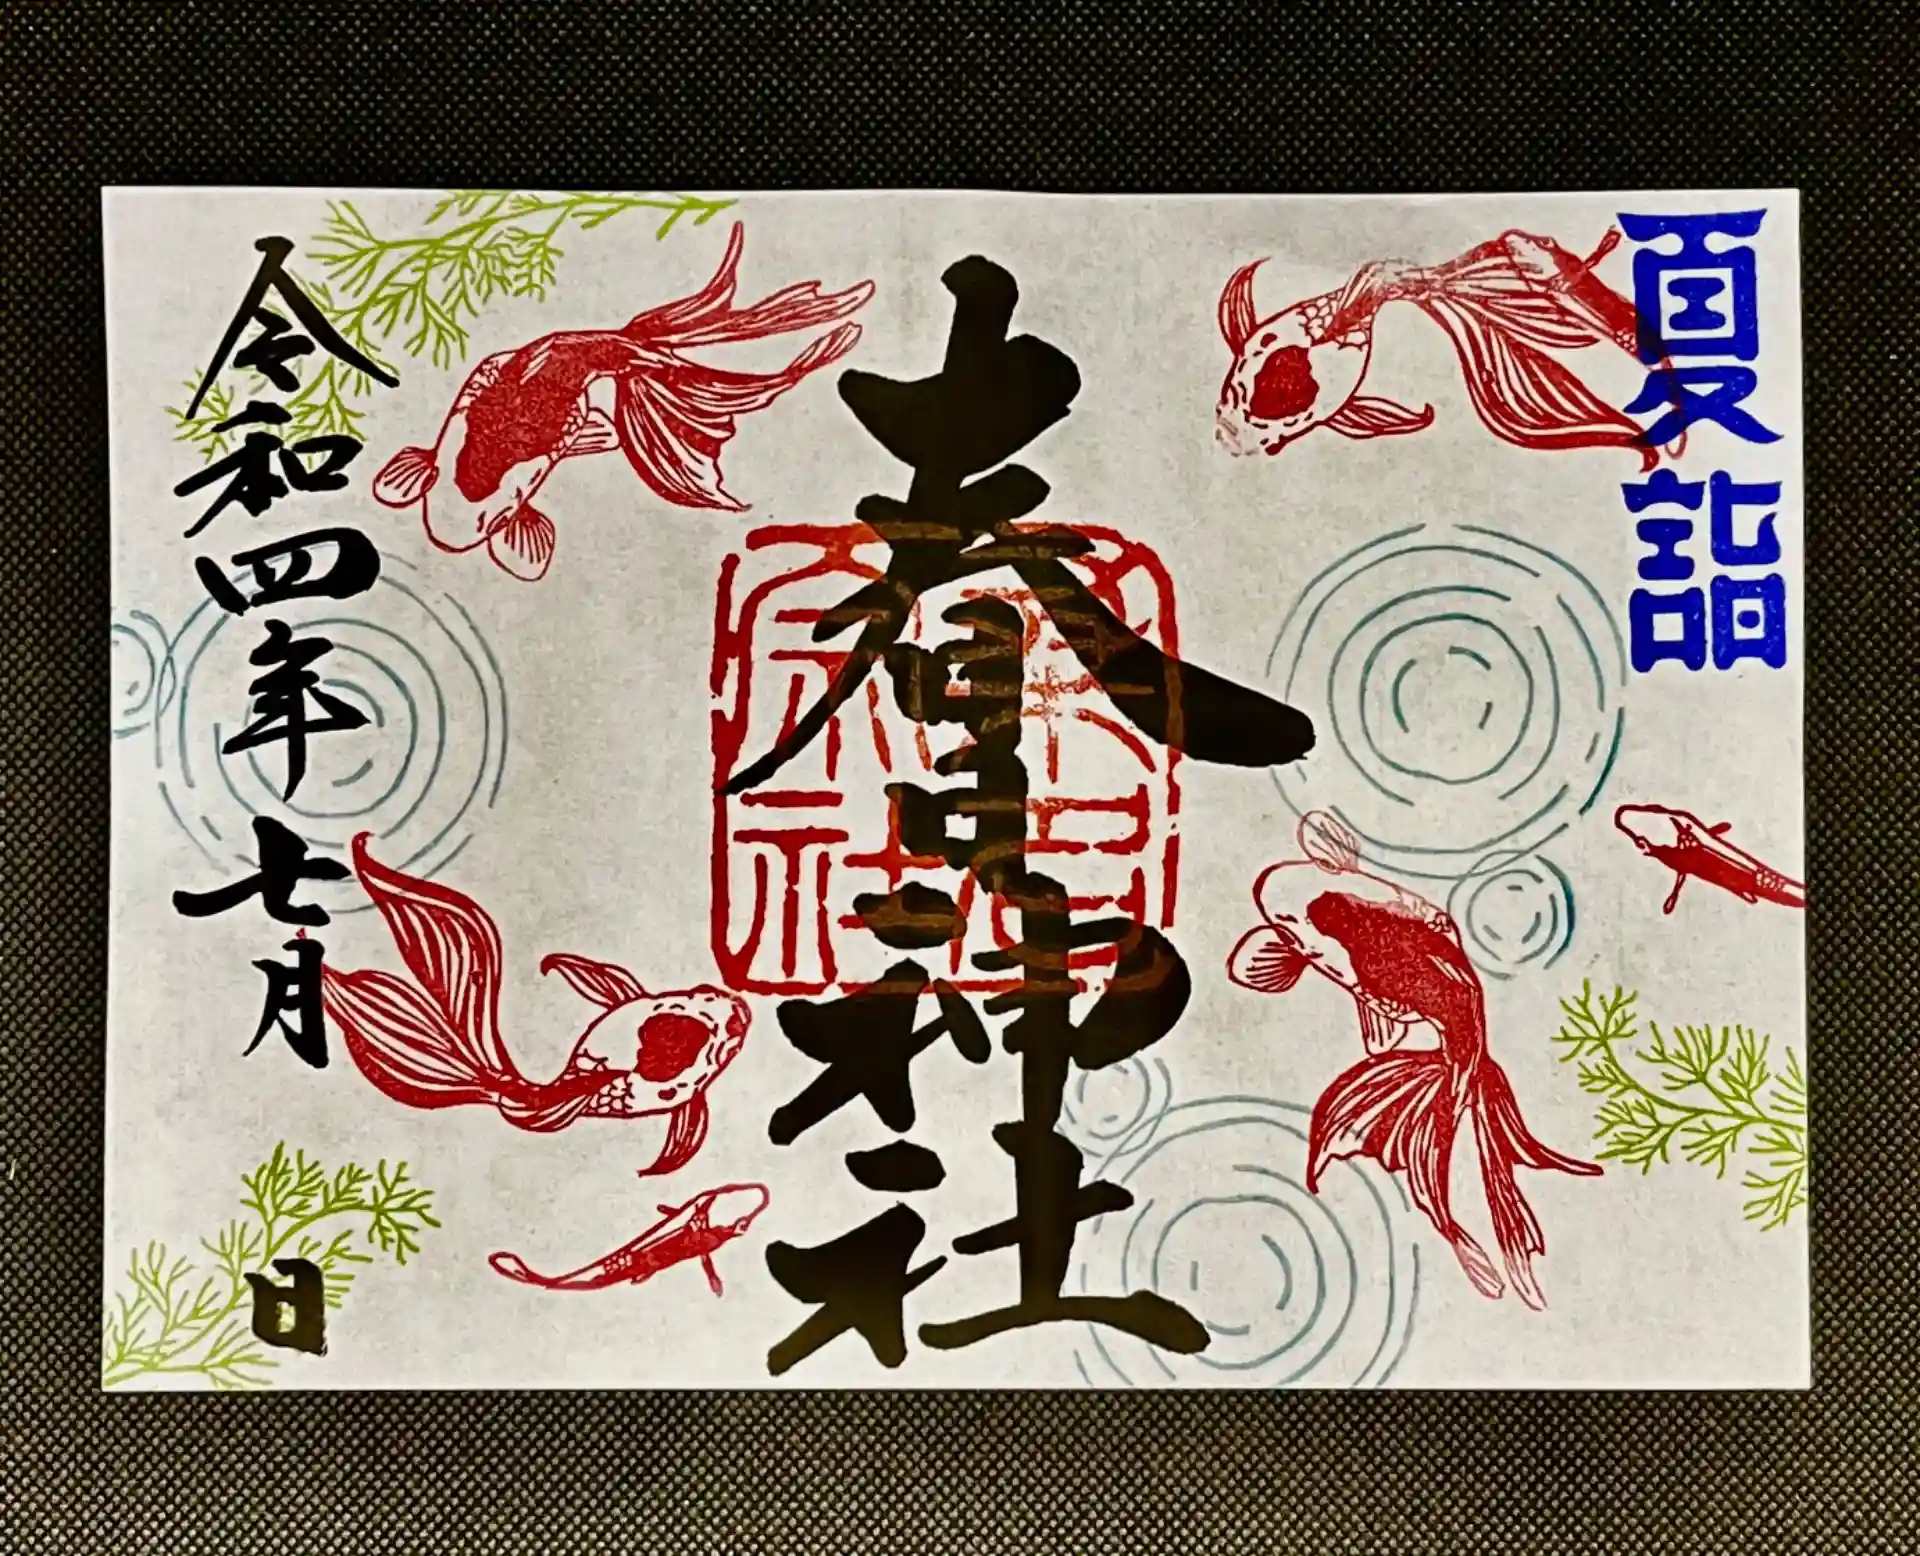 夏詣
春日神社
令和四年七月 日